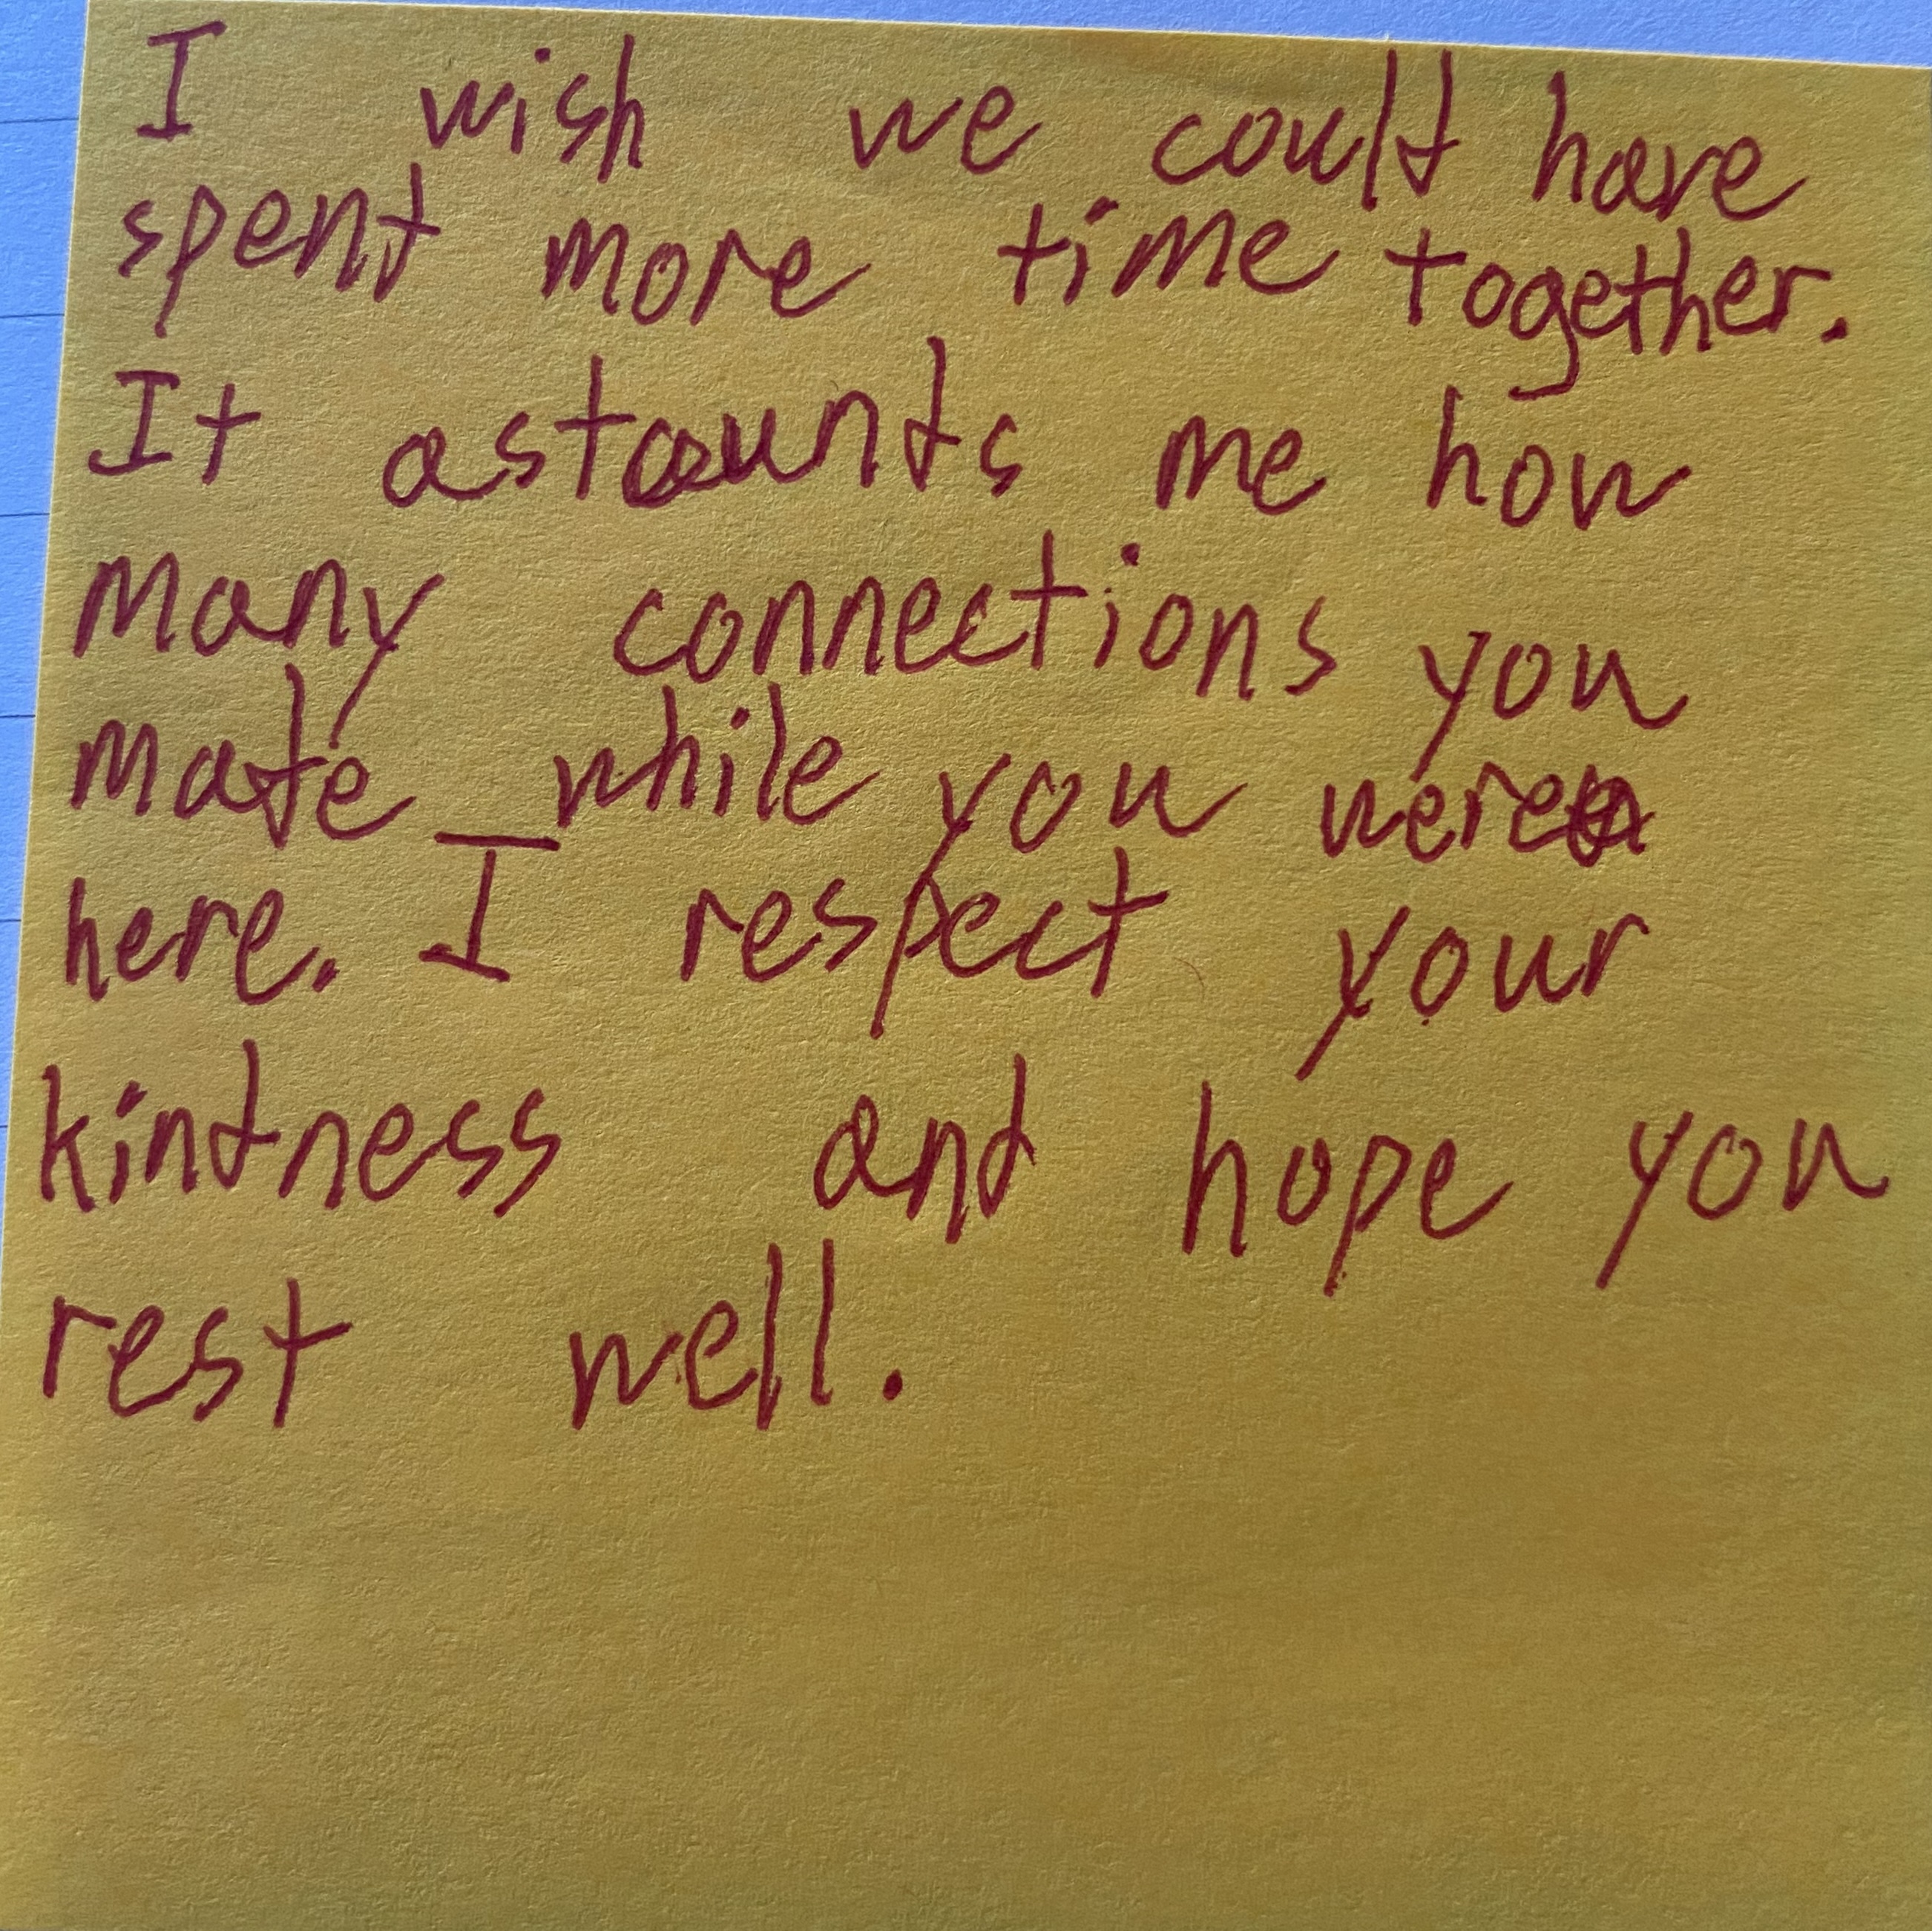 I wish we could have
spent more time together.
It astounds me how
many connections you
made while you were
here. I respect your
kindness and hope you
rest well.